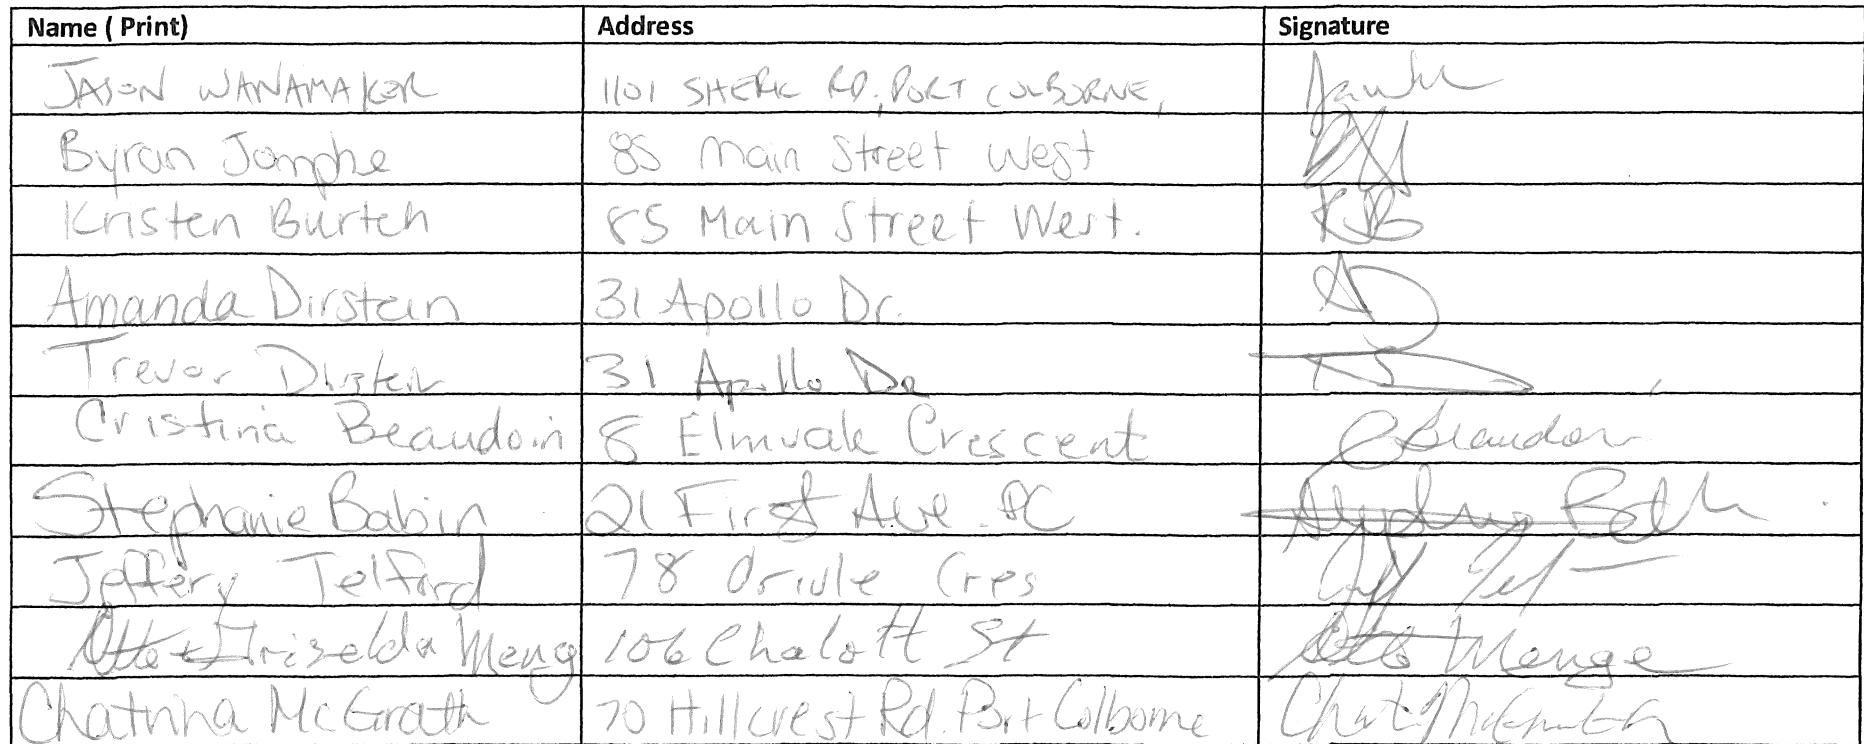 Name ( Print) Address Signature
JASON WANAMAKER 1101 SHERK RD., PORT COLBORNE,
Byron Jomphe 85 Main Street West
Kristen Burtch 85 Main Street West. KJB
Amanda Dirstein 31 Apollo Dr. AD
Trevor Dirstein 31 Apollo Dr TD
Cristina Beaudoin 8 Elmvale Crescent C Beaudoin
Stephanie Babin 21 First Ave. PC
Jeffery Telford 78 Oriole Cres
Otto & Griselda Meng 106 Chalott St Otto Menge
Chatrina McGrath 70 Hillcrest Rd. Port Colborne